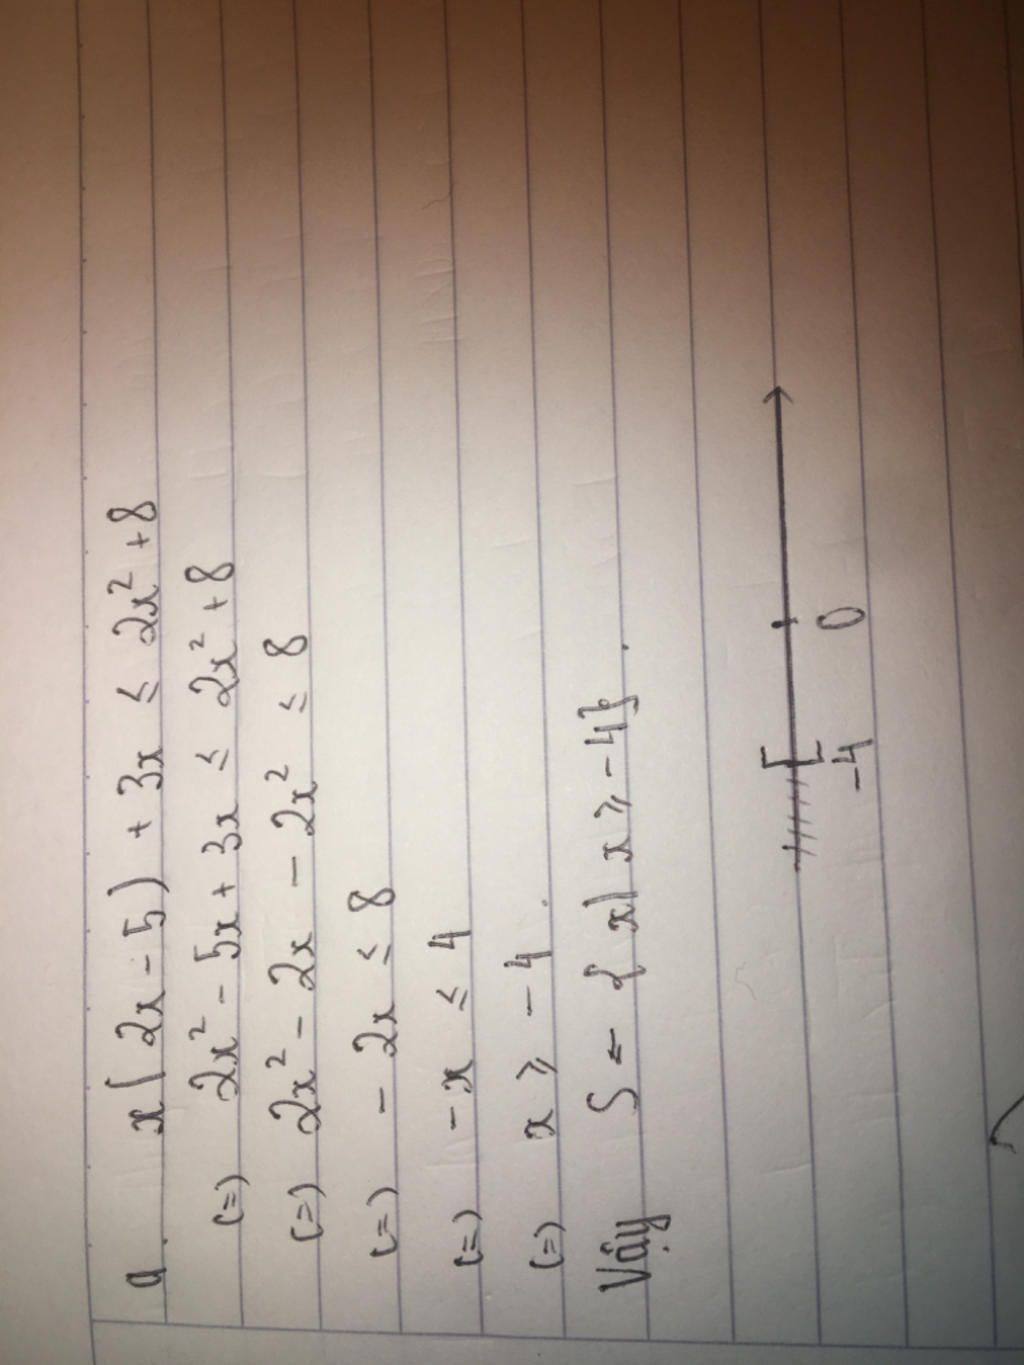 a. x(2x - 5) + 3x ≤ 2x² + 8
(=) 2x² - 5x + 3x ≤ 2x² + 8
(=) 2x² - 2x - 2x² ≤ 8
(=) - 2x ≤ 8
(=) - x ≤ 4
(=) x ⩾ - 4.
Vậy S = { x | x ⩾ - 4}.
-4 0